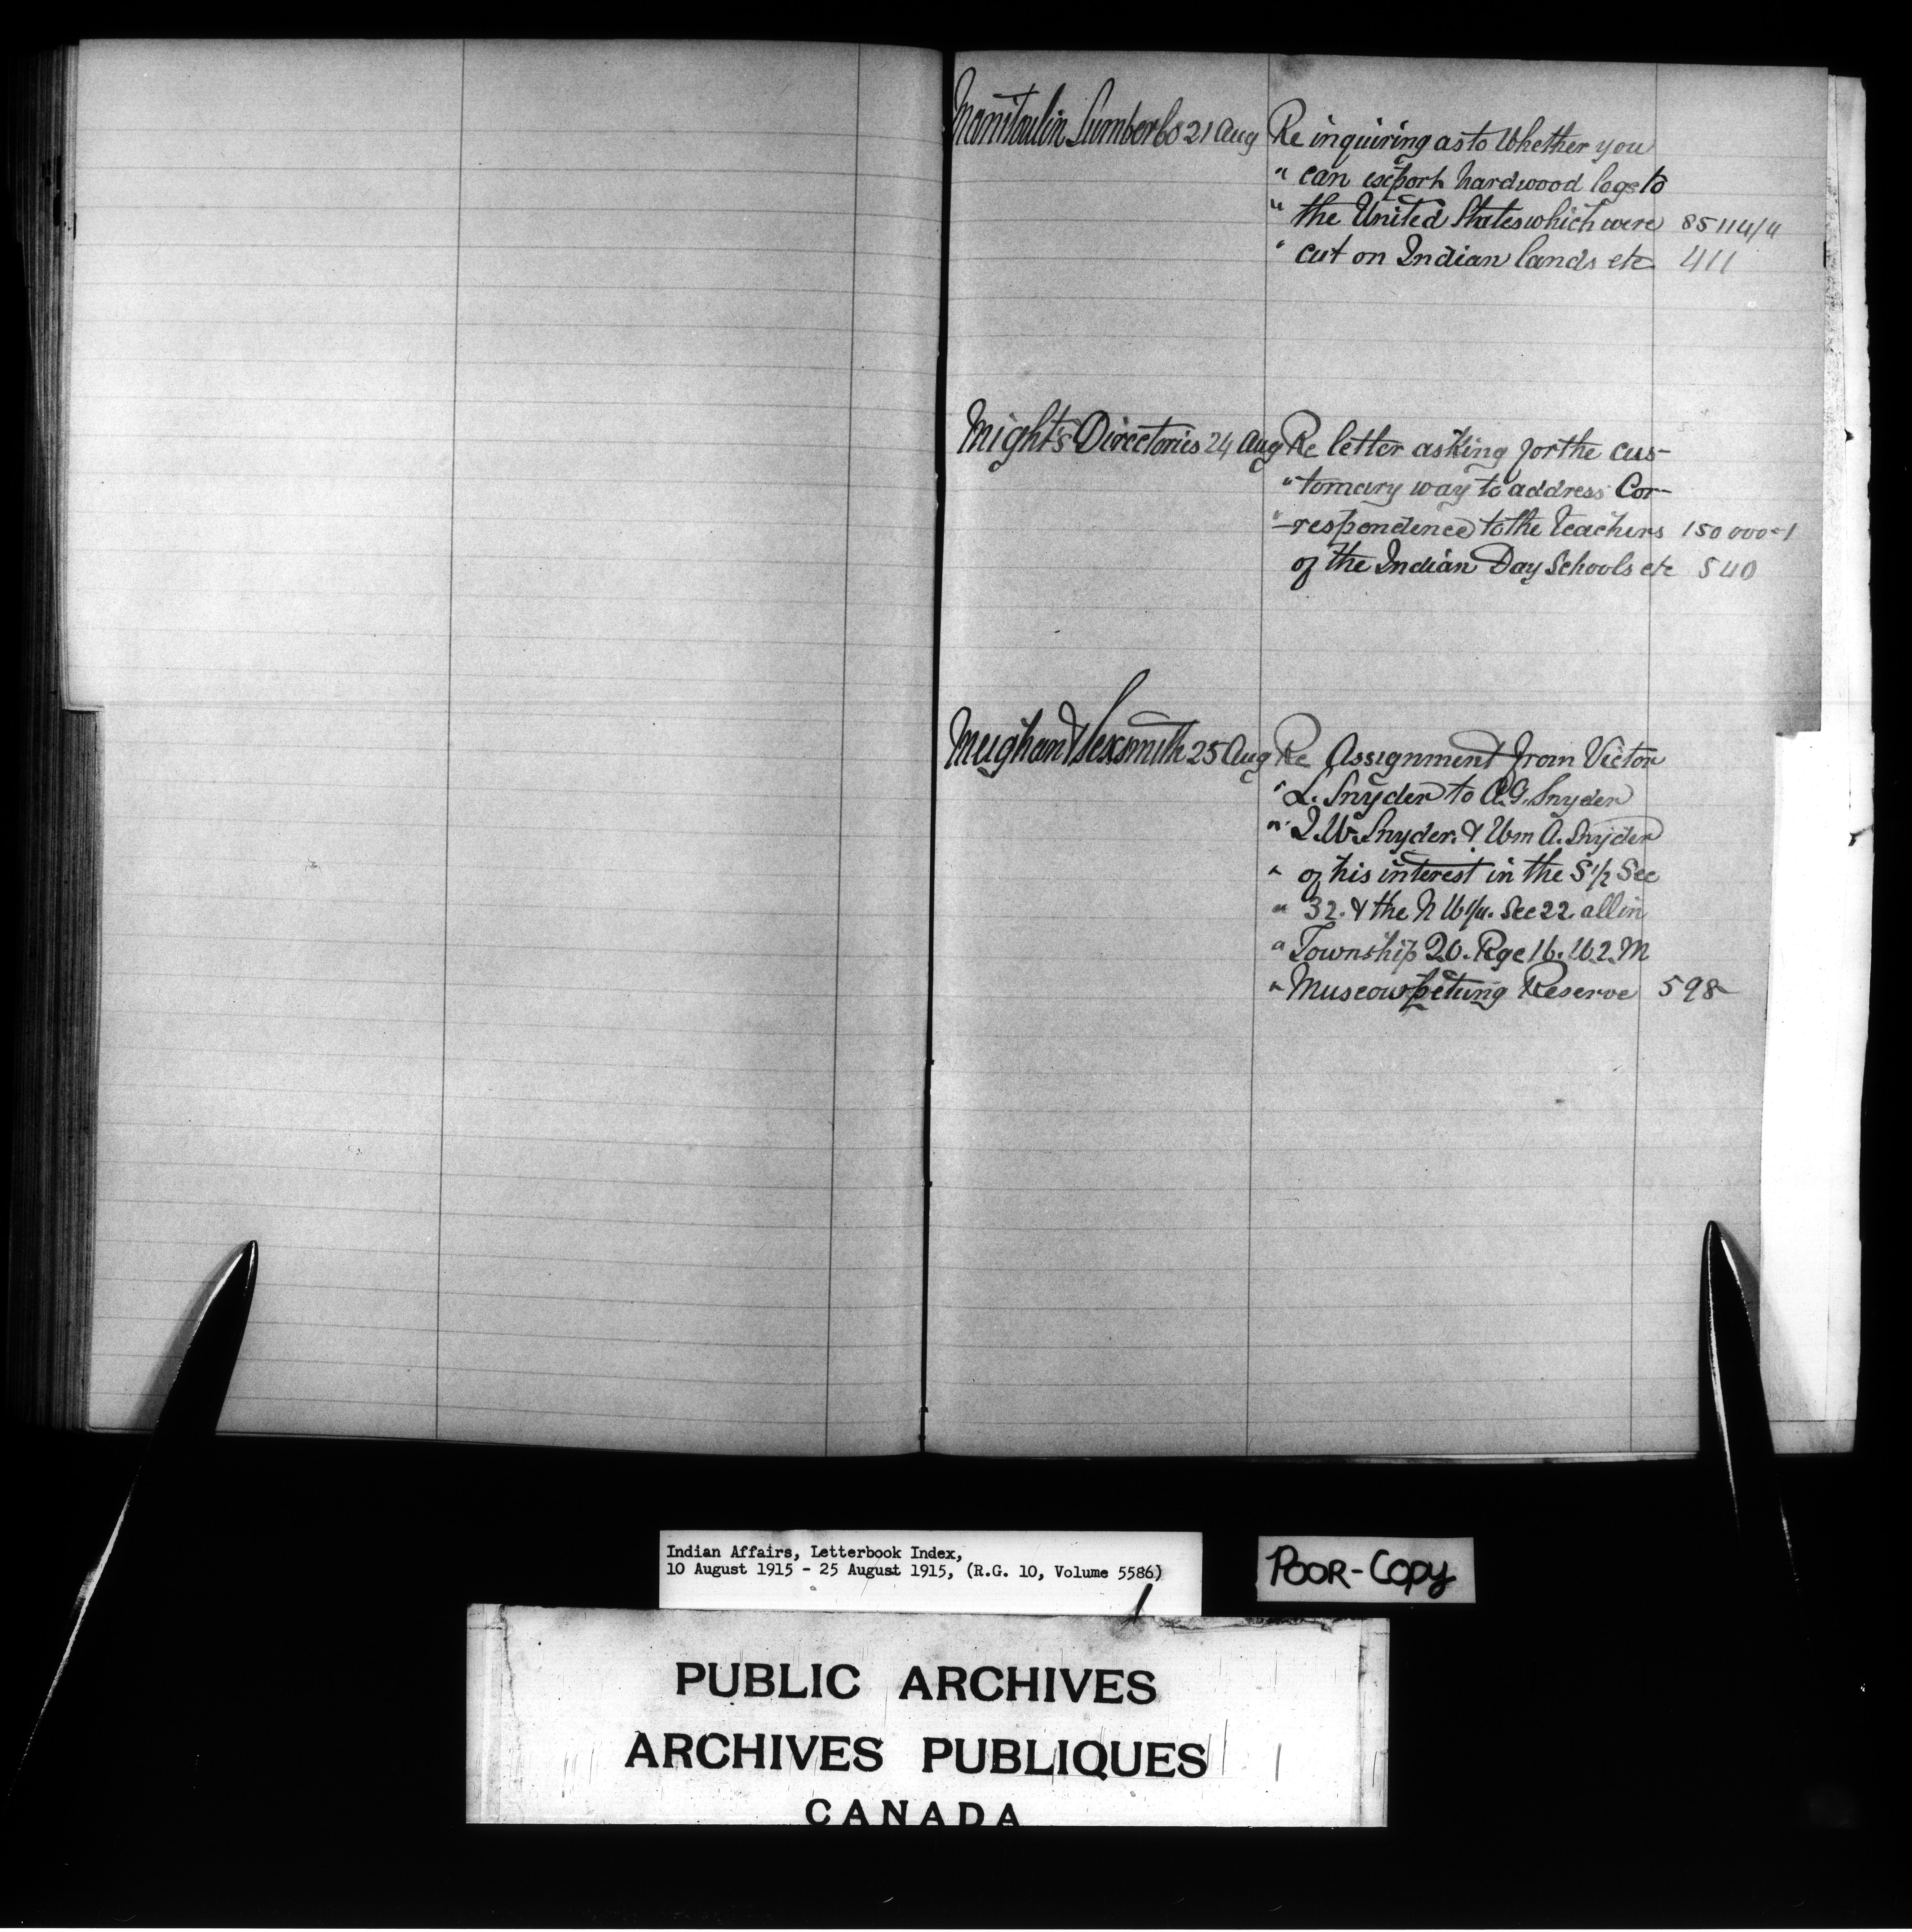 Manitoulin Lumber Co 21 Aug Re inquiring as to Whether you
" can export hardwood logs to
" the United States which were 85114/4
" cut on Indian lands etc 411
Might's Directories 24 Aug Re letter asking for the cus-
" tomary way to address Cor-
" -respondence to the Teachers 150 000-1
of the Indian Day Schools etc 540
Meighan & Sexsmith 25 Aug Re Assignment from Victor
" L. Snyder to A.G. Snyder
" I.W. Snyder. & Wm A. Snyder
" of his interest in the S 1/2 Sec
" 32. & the N W 1/4. Sec 22 all in
" Township 20. Rge 16. W 2. M
" Muscowpetung Reserve 598
Indian Affairs, Letterbook Index,
10 August 1915 - 25 August 1915, (R.G. 10, Volume 5586)
POOR-COPY
PUBLIC ARCHIVES
ARCHIVES PUBLIQUES
CANADA